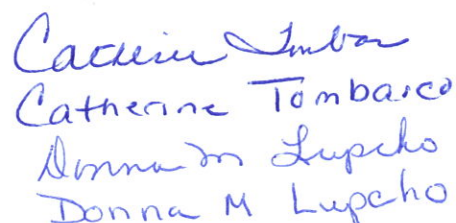 Catherine Tombasco
Catherine Tombasco
Donna M Lupcho
Donna M Lupcho